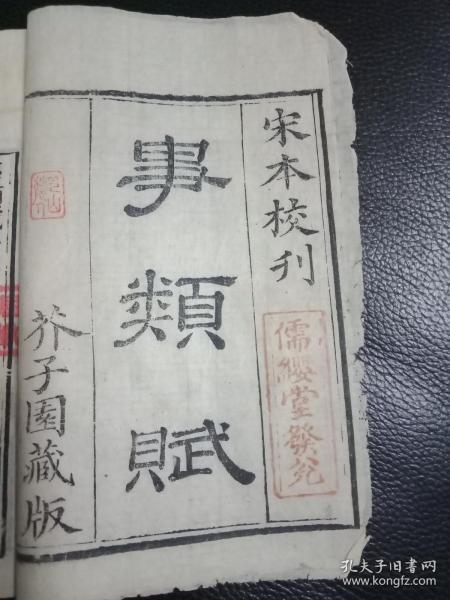 宋本校刊
儒纓堂發兌
事類賦
芥子園藏版
孔夫子旧书网
www.kongfz.com